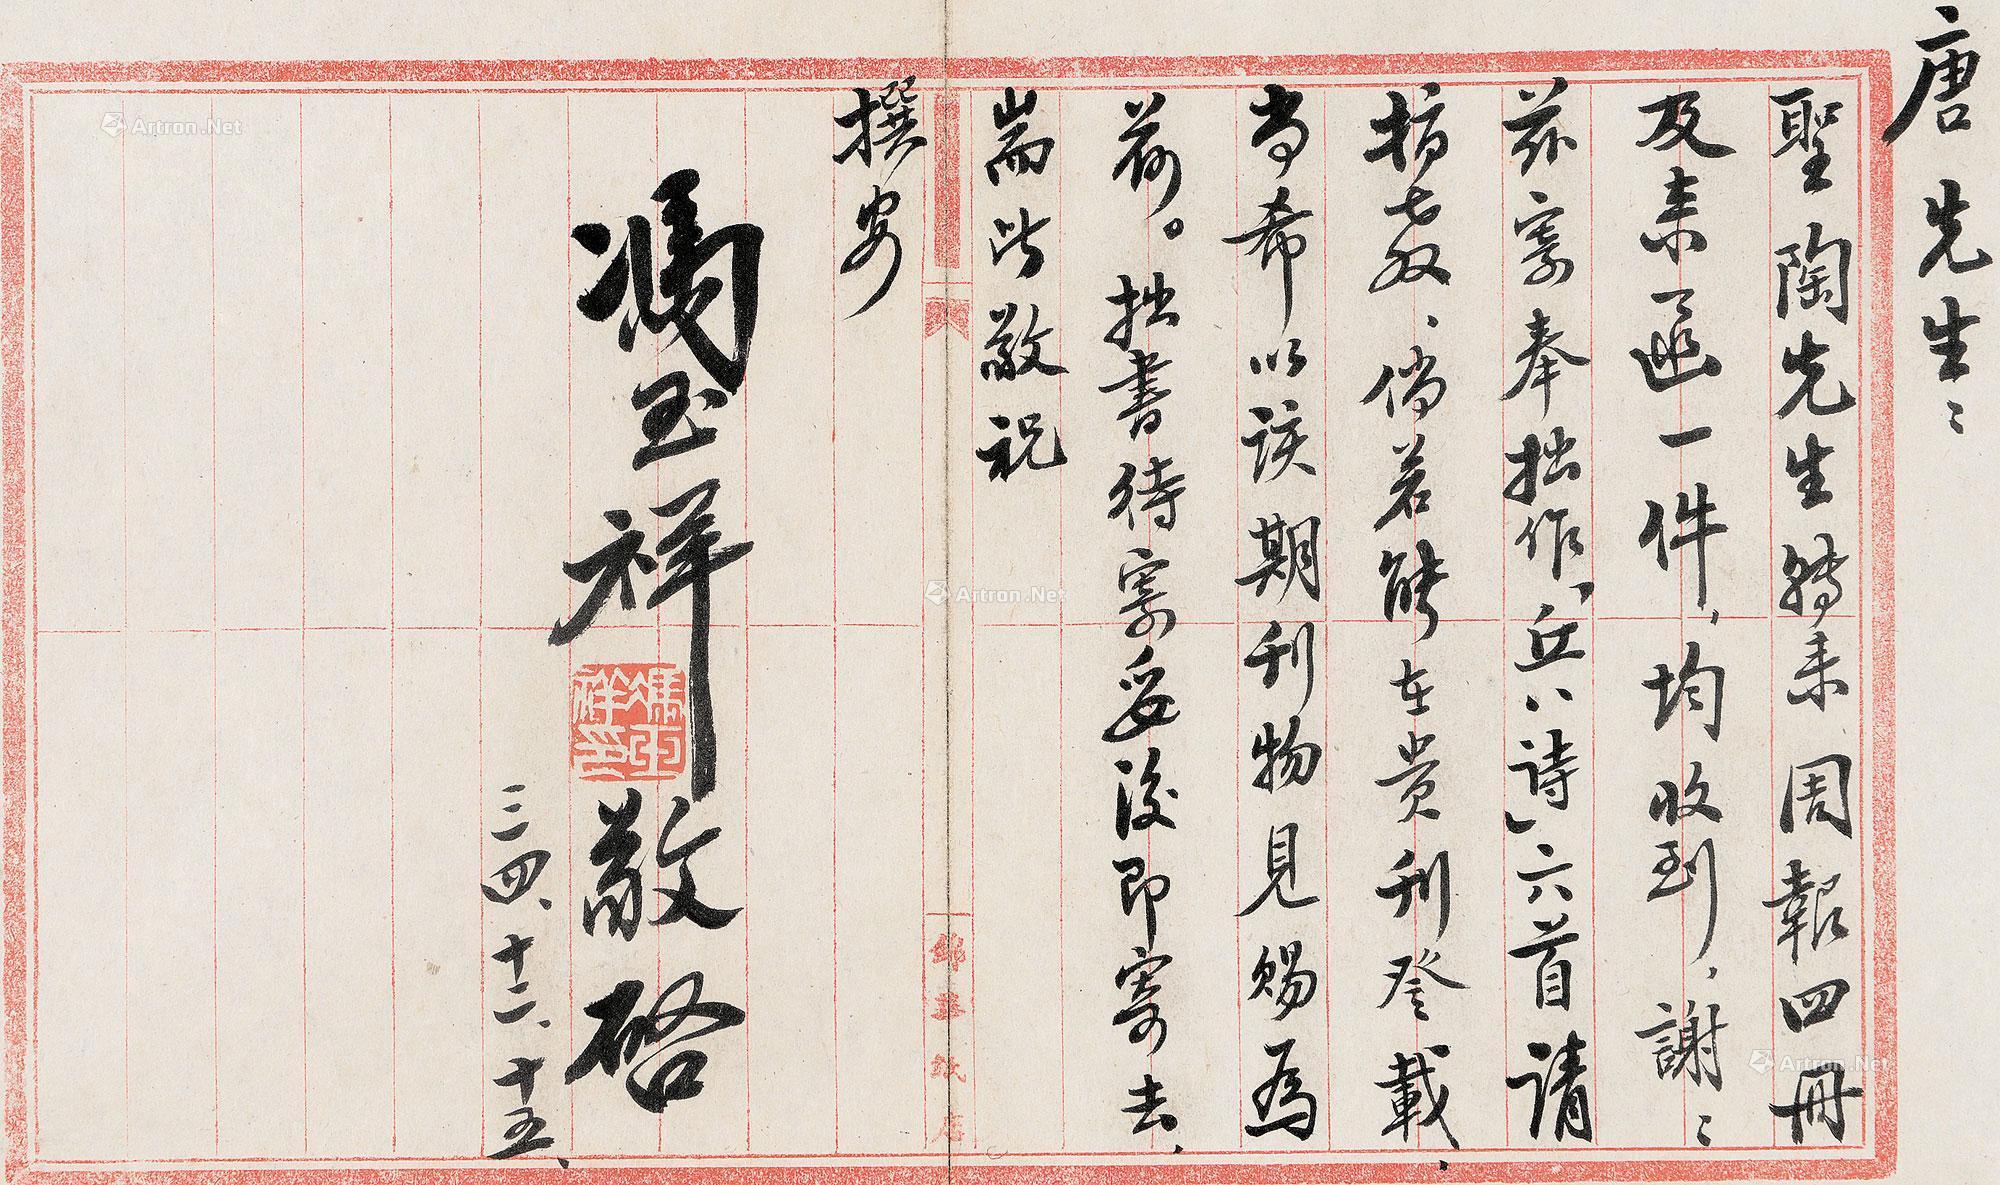 唐先生：
聖陶先生轉来周報四冊
及来函一件，均收到，謝：
茲寄奉拙作「丘八詩」六首請
指教、倘若能在貴刊登載，
尚希以該期刊物見賜為
荷。拙書待寄妥後即寄去，
耑此敬祝
撰安
馮玉祥敬啓
三四、十二、十五、
馮玉祥印
錦華紙店
Artron.Net
Artron.Net
Artron.Net